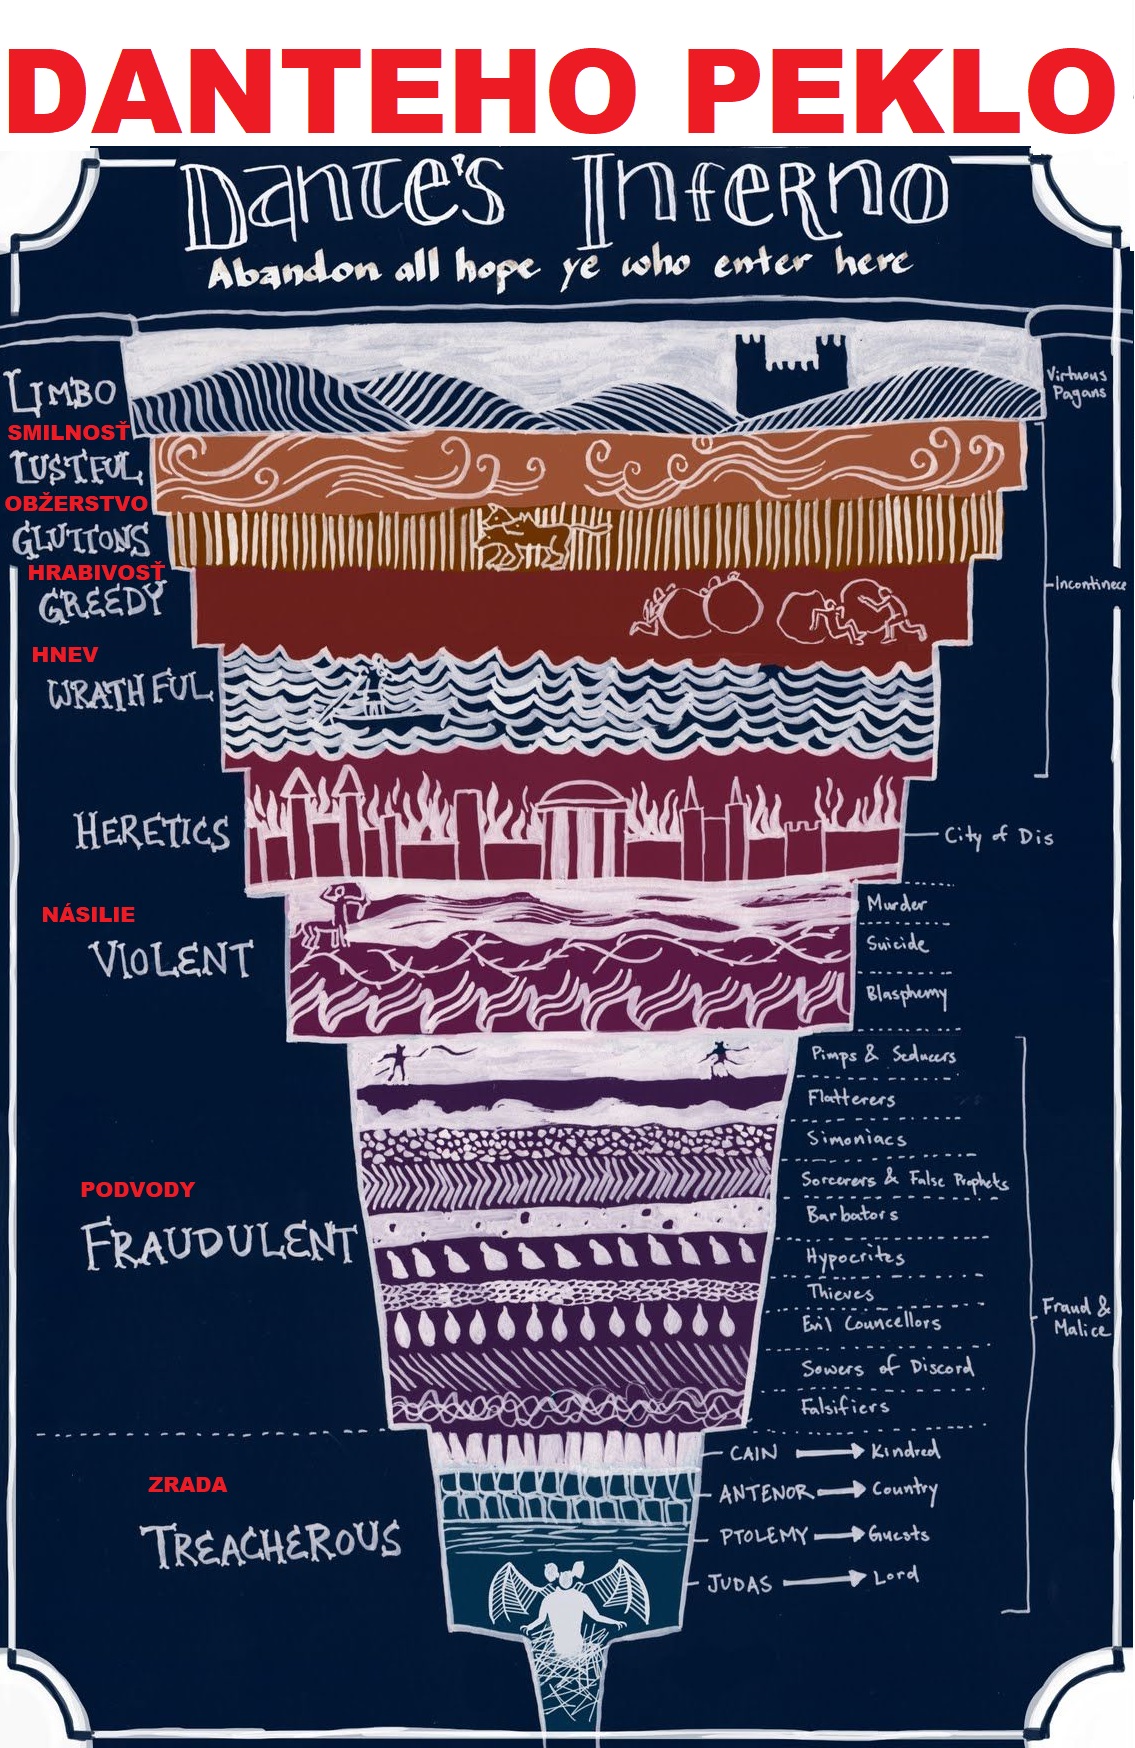 DANTEHO PEKLO
Dante's Inferno
Abandon all hope ye who enter here
LIMBO
Virtuous
Pagans
SMILNOSŤ
LUSTFUL
OBŽERSTVO
GLUTTONS
HRABIVOSŤ
GREEDY
Incontinece
HNEV
WRATHFUL
HERETICS
City of Dis
NÁSILIE
VIOLENT
Murder
Suicide
Blasphemy
PODVODY
FRAUDULENT
Pimps & Seducers
Flatterers
Simoniacs
Sorcerers & False Prophets
Barbators
Hypocrites
Thieves
Evil Councellors
Sowers of Discord
Falsifiers
Fraud &
Malice
ZRADA
TREACHEROUS
CAIN → Kindred
ANTENOR → Country
PTOLEMY → Guests
JUDAS → Lord